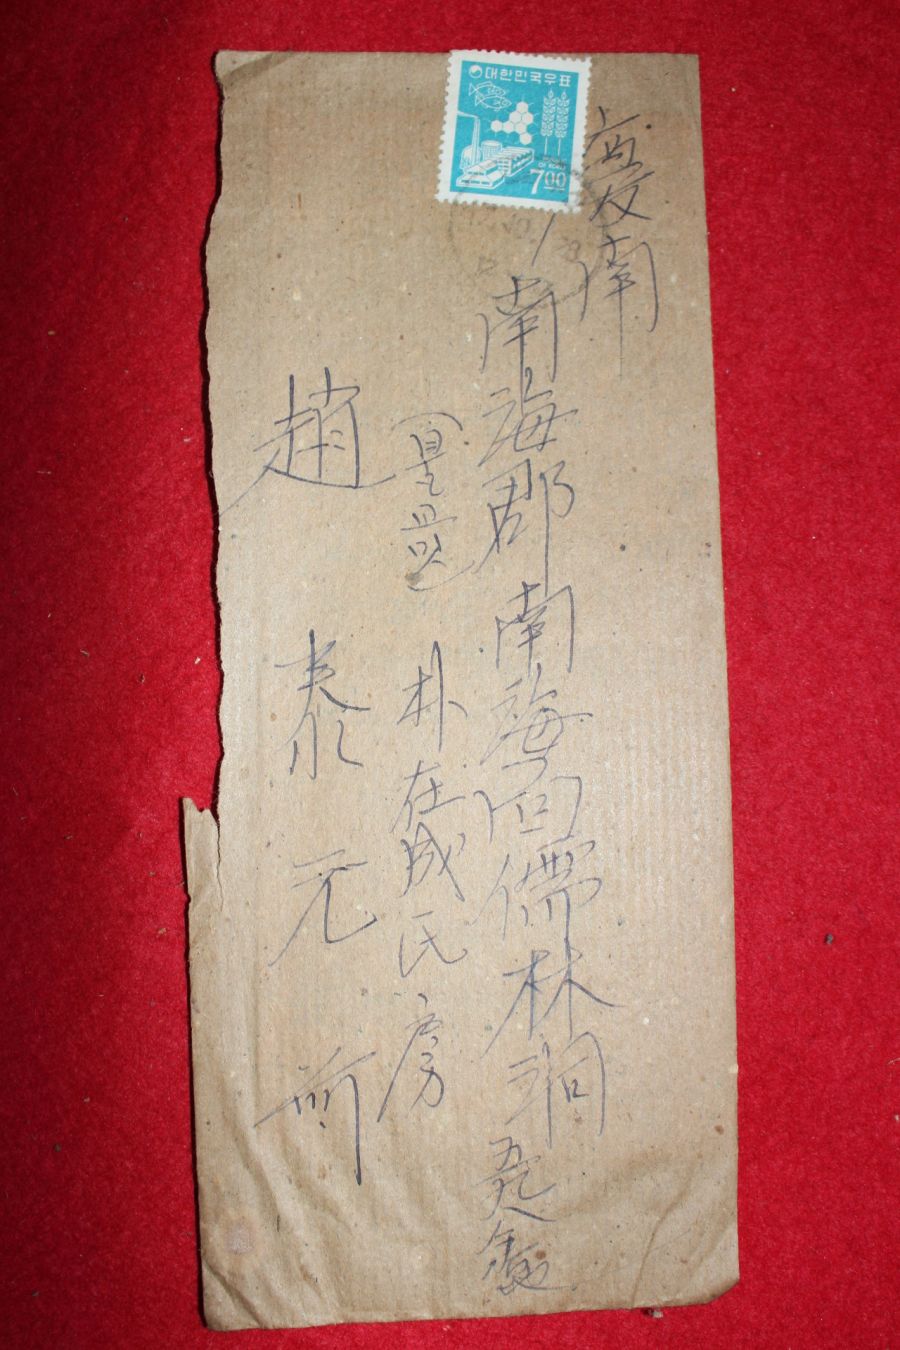 대한민국우표
7.00
慶南
南海郡 南海面 儒林洞
朴在成氏 房
趙 泰 元 前